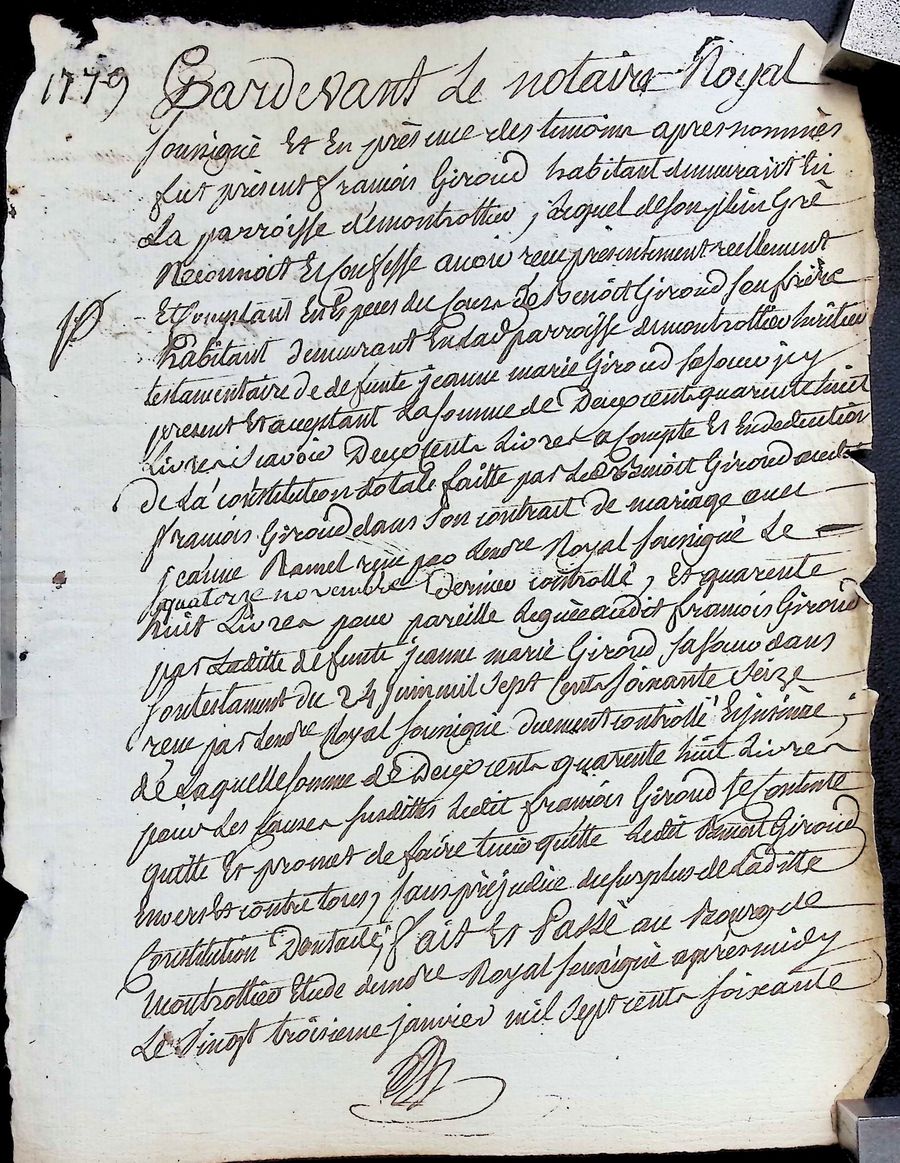 1779 Pardevant Le notaire Royal
soussigné Et En présence des temoins apres nommés
fut présent françois Giroud habitant demeurant En
La parroisse de montrottier, Lequel de son plein Gré
Reconnoit Et Confesse avoir reçu présentement reellement
Et Comptant En Especes du Cours de Benoit Giroud son frère
habitant demeurant En lad parroisse de montrottier héritier
testamentaire de defunte jeanne marie Giroud sa soeur jcy
present Et acceptant La somme de Deux cents quarente huit
Livres Scavoir Deux cents Livres a Compte Et En deduction
de La constitution totale faitte par Led Benoit Giroud audit
françois Giroud dans Son contrat de mariage avec
jeanne Ramel reçu par Lendre Royal soussigné Le
quatorze novembre Dernier controllé, Et quarente
huit Livres pour pareille Leguée audit françois Giroud
par Laditte defunte jeanne marie Giroud sa soeur dans
son testament du 24 juin mil Sept Cents soixante Seize
reçu par Lendre Royal soussigné duement controllé Et jnsinué;
de Laquelle somme de Deux cents quarente huit Livres
pour Les Causes susdittes Ledit françois Giroud se Contente
quitte Et promet de faire tenir quitte Ledit Benoit Giroud
Envers Et contre tous, sans préjudice du surplus de Laditte
Constitution Dotale, fait Et Passé au Bourg de
montrottier Etude dundre Royal soussigné apres midy
Le Vingt troisieme janvier mil Sept cents soixante